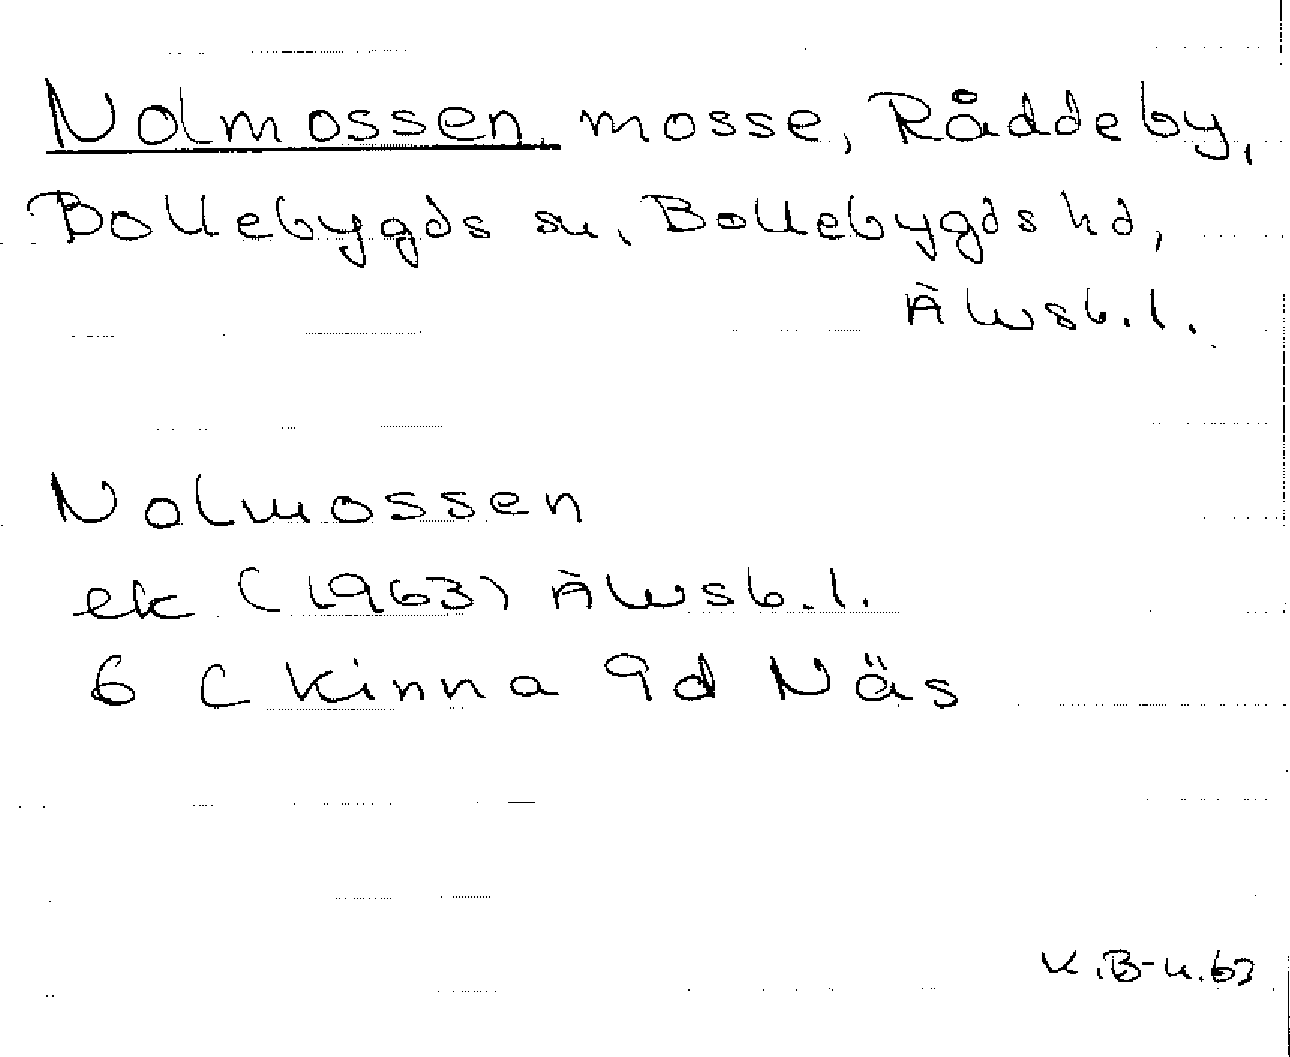 Nolmossen, mosse, Råddeby,
Bollebygds sn, Bollebygds hd,
Älvsb. l.
Nolmossen
ek (1963) Älvsb. l.
6 C Kinna 9d Näs
K.B-n. 63